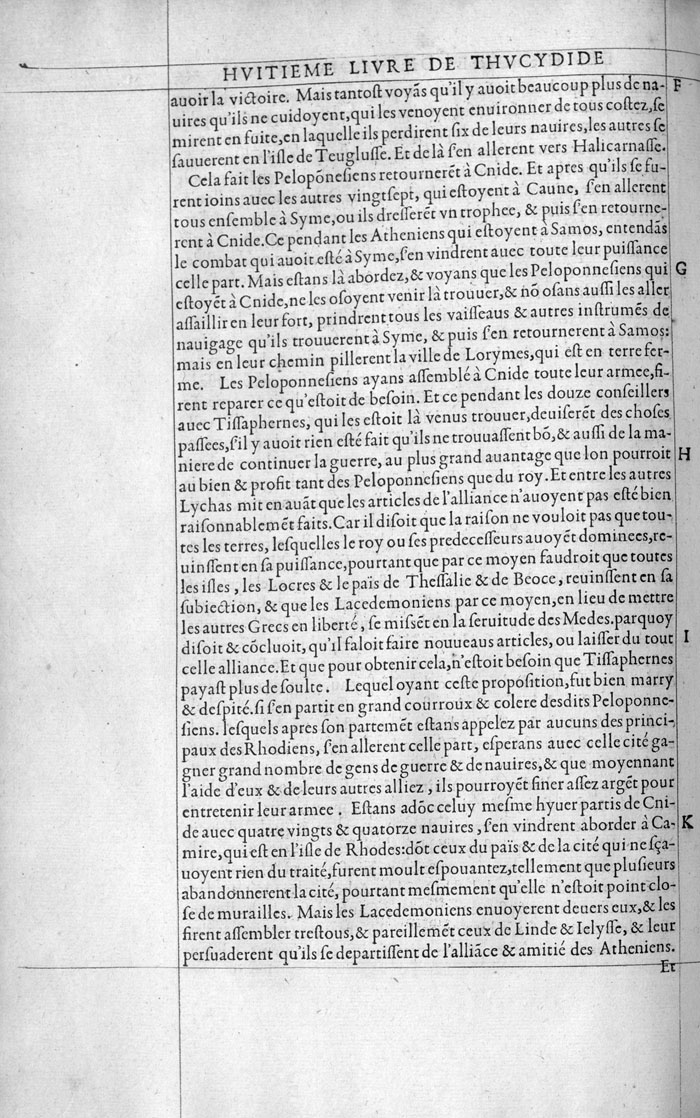 HVITIEME LIVRE DE THVCYDIDE
auoir la victoire. Mais tantoſt voyãs qu'il y auoit beaucoup plus de na- F
uires qu'ils ne cuidoyent, qui les venoyent enuironner de tous coſtez, ſe
mirent en fuite, en laquelle ils perdirent ſix de leurs nauires, les autres ſe
ſauuerent en l'iſle de Teugluſſe. Et de là ſ'en allerent vers Halicarnaſſe.
Cela fait les Pelopõneſiens retournerẽt à Cnide. Et apres qu'ils ſe fu-
rent ioins auec les autres vingtſept, qui eſtoyent à Caune, ſ'en allerent
tous enſemble à Syme, ou ils dreſſerẽt vn trophee, & puis ſ'en retourne-
rent à Cnide. Ce pendant les Atheniens qui eſtoyent à Samos, entendãs
le combat qui auoit eſté à Syme, ſ'en vindrent auec toute leur puiſſance
celle part. Mais eſtans là abordez, & voyans que les Peloponneſiens qui G
eſtoyẽt à Cnide, ne les oſoyent venir là trouuer, & nõ oſans auſſi les aller
aſſaillir en leur fort, prindrent tous les vaiſſeaus & autres inſtrumẽs de
nauigage qu'ils trouuerent à Syme, & puis ſ'en retournerent à Samos:
mais en leur chemin pillerent la ville de Lorymes, qui eſt en terre fer-
me. Les Peloponneſiens ayans aſſemblé à Cnide toute leur armee, fi-
rent reparer ce qu'eſtoit de beſoin. Et ce pendant les douze conſeillers
auec Tiſſaphernes, qui les eſtoit là venus trouuer, deuiſerẽt des choſes
paſſees, ſ'il y auoit rien eſté fait qu'ils ne trouuaſſent bõ, & auſſi de la ma-
niere de continuer la guerre, au plus grand auantage que lon pourroit H
au bien & profit tant des Peloponneſiens que du roy. Et entre les autres
Lychas mit en auãt que les articles de l'alliance n'auoyent pas eſté bien
raiſonnablemẽt faits. Car il diſoit que la raiſon ne vouloit pas que tou-
tes les terres, leſquelles le roy ou ſes predeceſſeurs auoyẽt dominees, re-
uinſſent en ſa puiſſance, pourtant que par ce moyen faudroit que toutes
les iſles, les Locres & le païs de Theſſalie & de Beoce, reuinſſent en ſa
ſubiection, & que les Lacedemoniens par ce moyen, en lieu de mettre
les autres Grecs en liberté, ſe miſſẽt en la ſeruitude des Medes. parquoy
diſoit & cõcluoit, qu'il faloit faire nouueaus articles, ou laiſſer du tout I
celle alliance. Et que pour obtenir cela, n'eſtoit beſoin que Tiſſaphernes
payaſt plus de ſoulte. Lequel oyant ceſte propoſition, fut bien marry
& deſpité. ſi ſ'en partit en grand courroux & colere deſdits Peloponne-
ſiens. leſquels apres ſon partemẽt eſtans appelez par aucuns des princi-
paux des Rhodiens, ſ'en allerent celle part, eſperans auec celle cité ga-
gner grand nombre de gens de guerre & de nauires, & que moyennant
l'aide d'eux & de leurs autres alliez, ils pourroyẽt finer aſſez argẽt pour
entretenir leur armee. Eſtans adõc celuy meſme hyuer partis de Cni-
de auec quatre vingts & quatorze nauires, ſ'en vindrent aborder à Ca- K
mire, qui eſt en l'iſle de Rhodes: dõt ceux du païs & de la cité qui ne ſça-
uoyent rien du traité, furent moult eſpouantez, tellement que pluſieurs
abandonnerent la cité, pourtant meſmement qu'elle n'eſtoit point clo-
ſe de murailles. Mais les Lacedemoniens enuoyerent deuers eux, & les
firent aſſembler treſtous, & pareillemẽt ceux de Linde & Ielyſſe, & leur
perſuaderent qu'ils ſe departiſſent de l'alliãce & amitié des Atheniens.
Et